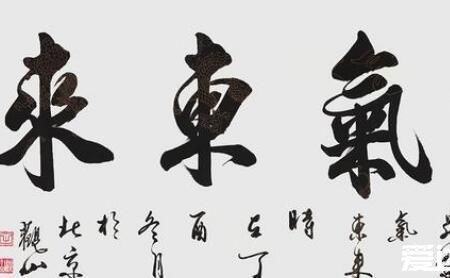 氣東來
氣
東來
時
在丁
酉
冬月
於
北京
觀山